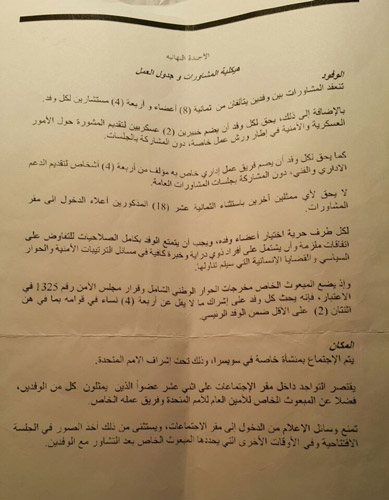 الأجندة النهائية
هيكلية المشاورات و جدول العمل
الوفود
تنعقد المشاورات بين وفدين يتألفان من ثمانية (8) أعضاء و أربعة (4) مستشارين لكل وفد.
بالإضافة إلى ذلك، يحق لكل وفد أن يضم خبيرين (2) عسكريين لتقديم المشورة حول الأمور
العسكرية والأمنية في إطار ورش عمل خاصة، دون المشاركة بالجلسات.
كما يحق لكل وفد أن يضم فريق عمل إداري خاص به مؤلف من أربعة (4) أشخاص لتقديم الدعم
الاداري والفني، دون المشاركة بجلسات المشاورات العامة.
لا يحق لأي ممثلين أخرين باستثناء الثمانية عشر (18) المذكورين أعلاه الدخول إلى مقر
المشاورات.
لكل طرف حرية اختيار أعضاء وفده، ويجب أن يتمتع الوفد بكامل الصلاحيات للتفاوض على
اتفاقات ملزمة وأن يشتمل على أفراد ذوي دراية وخبرة كافية في مسائل الترتيبات الأمنية والحوار
السياسي و القضايا الانسانية التي سيتم تناولها.
وإذ يضع المبعوث الخاص مخرجات الحوار الوطني الشامل وقرار مجلس الأمن رقم 1325 في
الاعتبار، فإنه يحث كل وفد على إشراك ما لا يقل عن أربعة (4) نساء في قوامه بما في هن
اثنتان (2) على الأقل ضمن الوفد الرئيسي.
المكان
يتم الإجتماع بمنشأة خاصة في سويسرا، وذلك تحت إشراف الامم المتحدة.
يقتصر التواجد داخل مقر الإجتماعات على اثني عشر عضواً الذين يمثلون كل من الوفدين،
فضلا عن المبعوث الخاص للأمين العام للأمم المتحدة وفريق عمله الخاص.
تمنع وسائل الاعلام من الدخول إلى مقر الاجتماعات، ويستثنى من ذلك أخذ الصور في الجلسة
الافتتاحية وفي الأوقات الأخرى التي يحددها المبعوث الخاص بعد التشاور مع الوفدين.